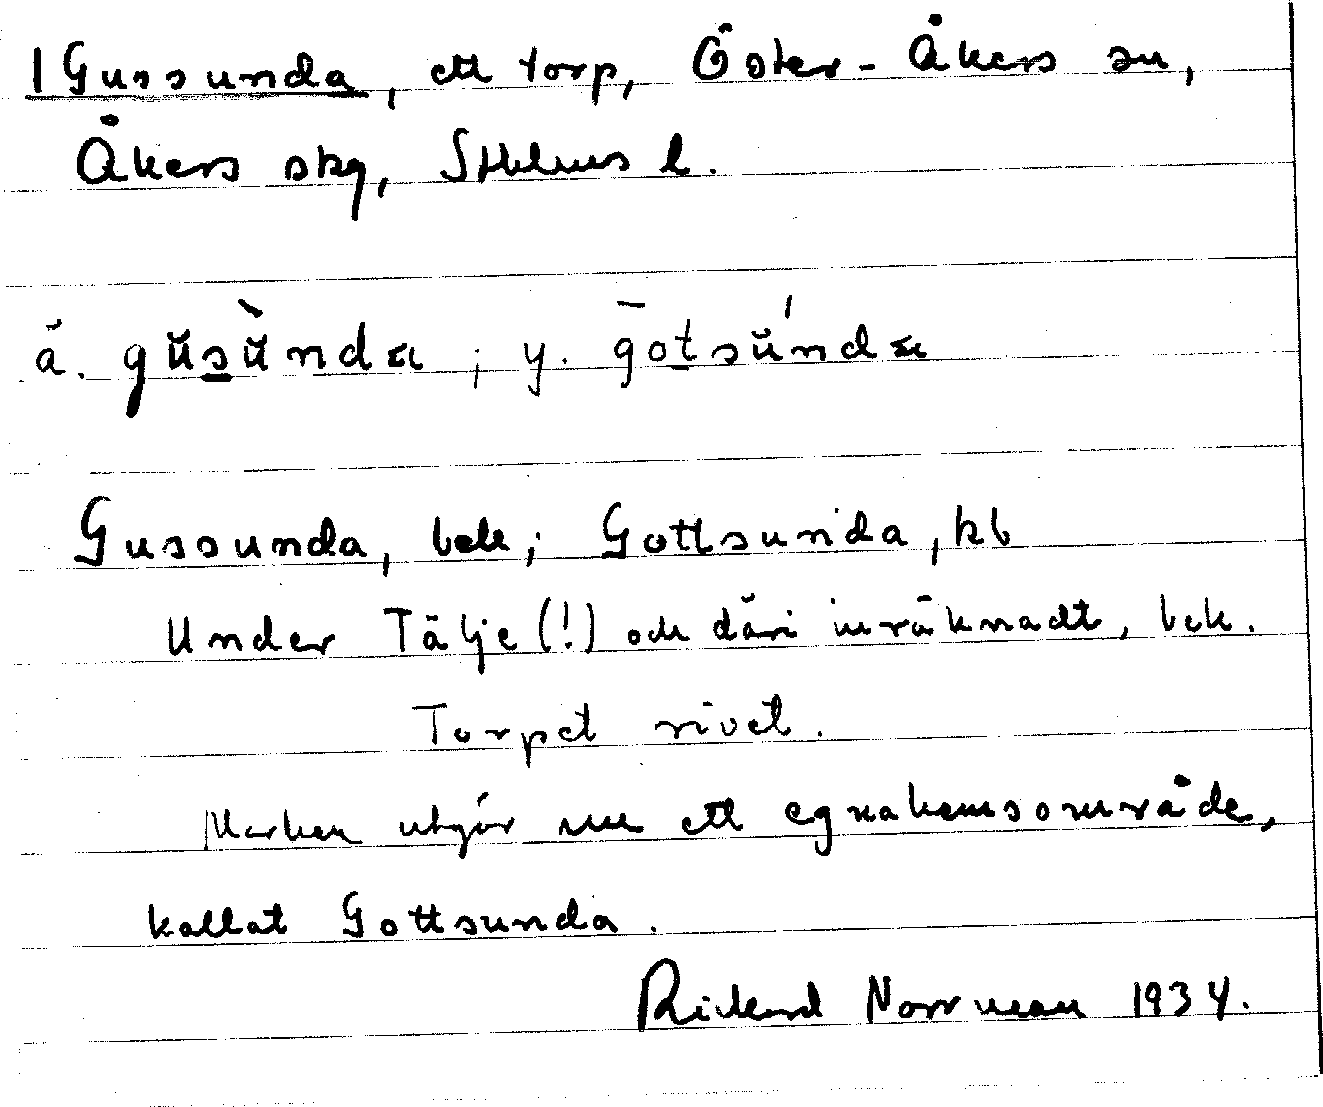 1 Gussunda, ett torp, Öster-Åkers sn,
Åkers skg, Sthlms l.
ä. gŭsŭ̀nda ; y. gōtsŭ́nda
Gussunda, bek; Gottsunda, kb
Under Tälje (!) och däri inräknadt, bek.
Torpet rivet.
Marken utgör nu ett egnahemsområde,
kallat Gottsunda.
Rickard Norrman 1934.